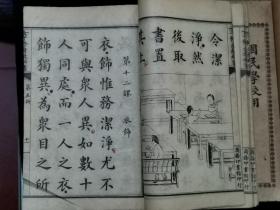 國民學校用
令潔
淨,然
後取
書置
第十二課 衣飾
衣飾惟務潔淨尤不
可與衆人異如數十
人同處而一人之衣
飾獨異為衆目之所